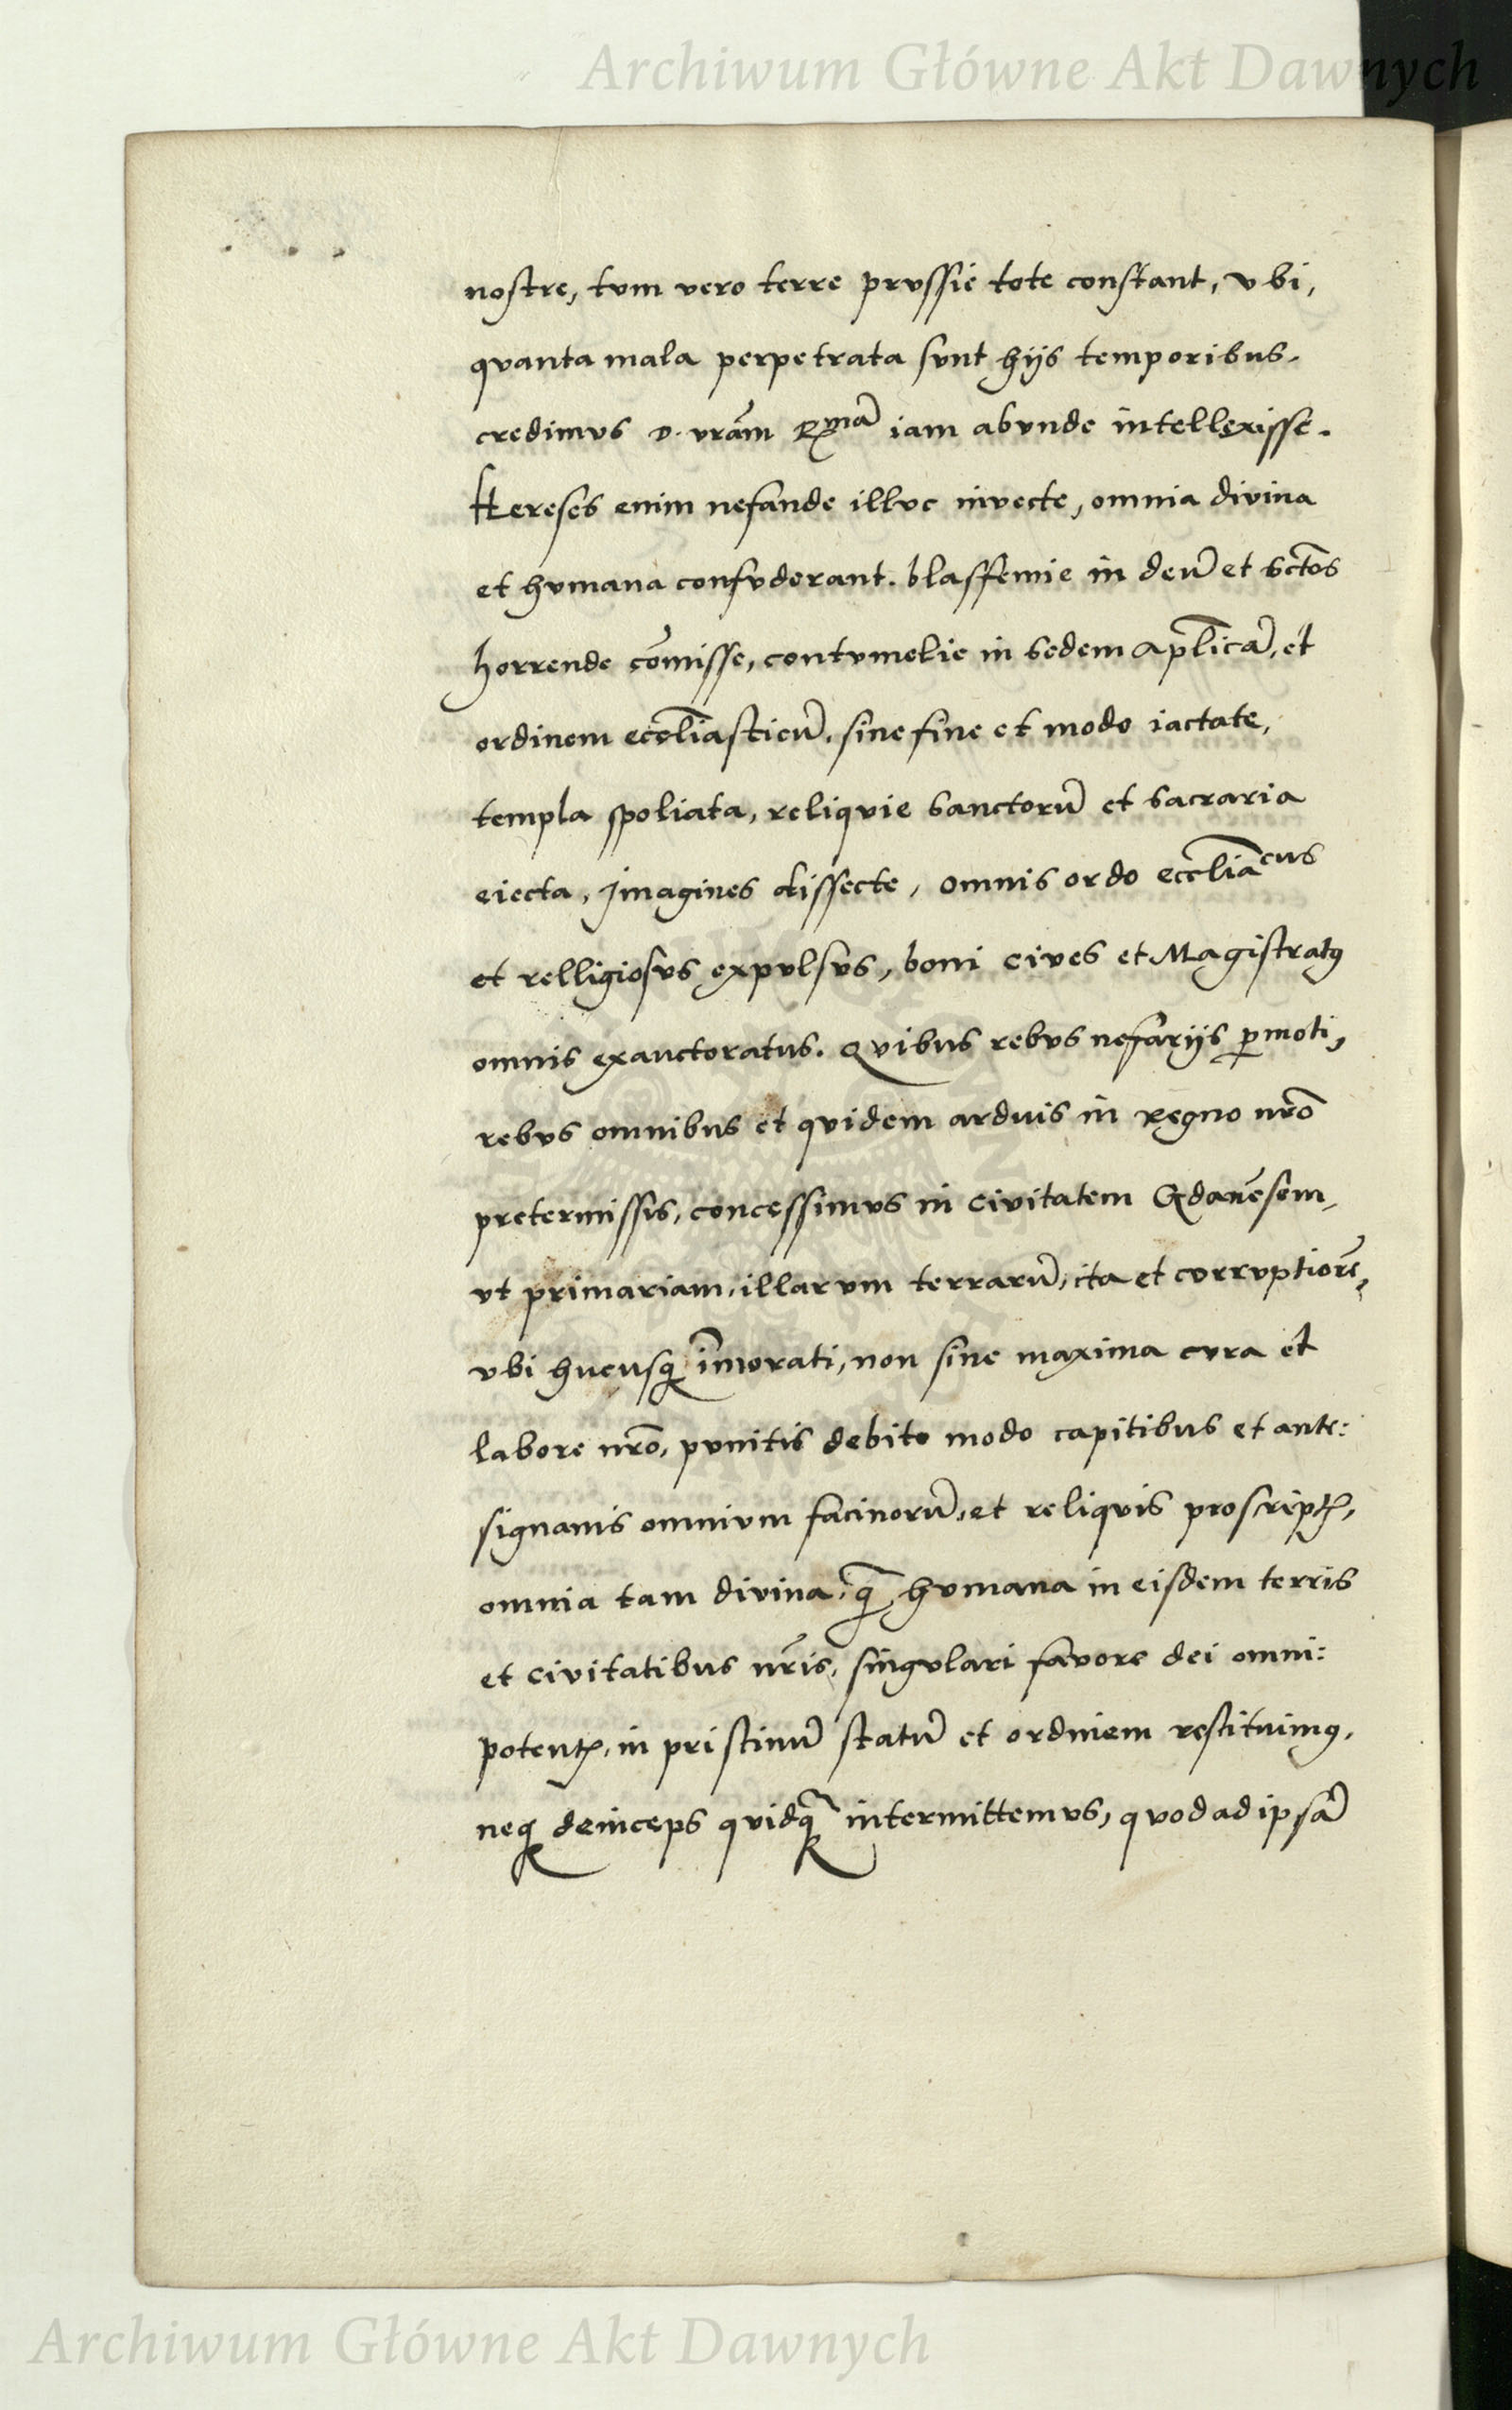 Archiwum Główne Akt Dawnych
nostre, tvm vero terre prvssie tote constant, vbi,
qvanta mala perpetrata svnt hijs temporibus.
credimvs D. vram̄ Rmā iam abvnde intellexisse.
Hereses enim nefande illvc invecte, omnia divina
et hvmana confvderant. blasffemie in deū et sctōs
horrende cōmisse, contvmelie in sedem aplīcā, et
ordinem eccliāsticū. sine fine et modo iactate,
templa spoliata, reliqvie sanctorū et sacraria
eiecta, Imagines dissecte, omnis ordo eccliācus
et relligiosvs expvlsvs, boni cives et Magistratꝰ
omnis exauctoratus. Qvibus rebvs nefarijs ꝑmoti,
rebvs omnibus et qvidem ardvis in Regno nrō
pretermissis, concessimvs in civitatem Gdanēsem,
vt primariam, illarvm terrarū, ita et corrvptiorē,
vbi hucusqꝫ īmorati, non sine maxima cvra et
labore nrō, pvnitis debito modo capitibus et ante:
signanis omnivm facinorū, et reliqvis proscriptꝭ,
omnia tam divina, q̄ hvmana in eisdem terris
et civitatibus nrīs, singvlari favore dei omni:
potentꝭ, in pristinū statū et ordinem restituimꝰ,
neqꝫ deinceps qvidq̄ intermittemvs, qvod ad ipsā
Archiwum Główne Akt Dawnych